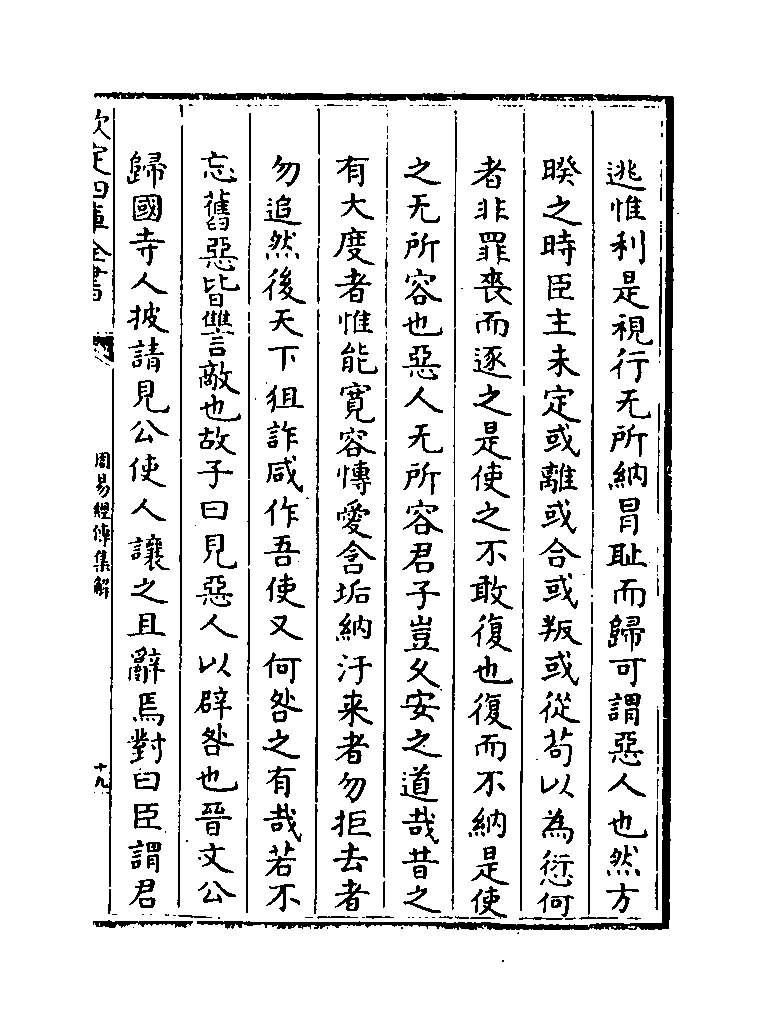 逃惟利是視行无所納冐耻而歸可謂惡人也然方
睽之時臣主未定或離或合或叛或從茍以為愆何
者非罪喪而逐之是使之不敢復也復而不納是使
之无所容也惡人无所容君子豈乆安之道哉昔之
有大度者惟能寛容慱愛含垢納汙来者勿拒去者
勿追然後天下狙詐咸作吾使又何咎之有哉若不
忘舊惡皆讐敵也故子曰見惡人以辟咎也晉文公
歸國寺人披請見公使人讓之且辭焉對曰臣謂君
欽定四庫全書
周易經傳集解
十九